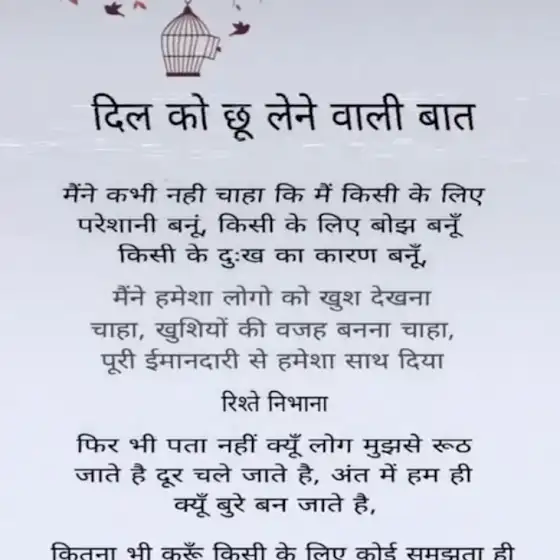 दिल को छू लेने वाली बात
मैंने कभी नही चाहा कि मैं किसी के लिए
परेशानी बनूं, किसी के लिए बोझ बनूँ
किसी के दुःख का कारण बनूँ,
मैंने हमेशा लोगो को खुश देखना
चाहा, खुशियों की वजह बनना चाहा,
पूरी ईमानदारी से हमेशा साथ दिया
रिश्ते निभाना
फिर भी पता नहीं क्यूँ लोग मुझसे रूठ
जाते है दूर चले जाते है, अंत में हम ही
क्यूँ बुरे बन जाते है,
कितना भी करूँ किसी के लिए कोई समझता ही